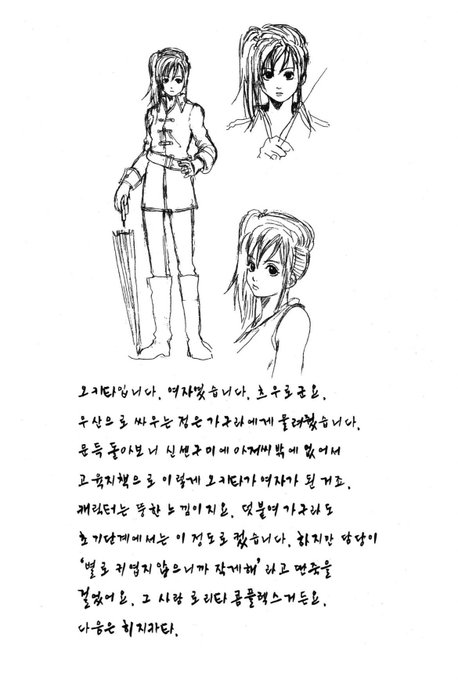 오키타입니다. 여자였습니다. 츠우로군요.
우산으로 싸우는 점은 가구라에게 물려줬습니다.
문득 돌아보니 신센구미에 아저씨밖에 없어서
고육지책으로 이렇게 오키타가 여자가 된 거죠.
캐릭터는 뚱한 느낌이지요. 덧붙여 가구라도
초기단계에서는 이 정도로 컸습니다. 하지만 담당이
‘별로 귀엽지 않으니까 작게해’ 라고 딴죽을
걸었어요. 그 사람 로리타 콤플렉스거든요.
다음은 히지카타.